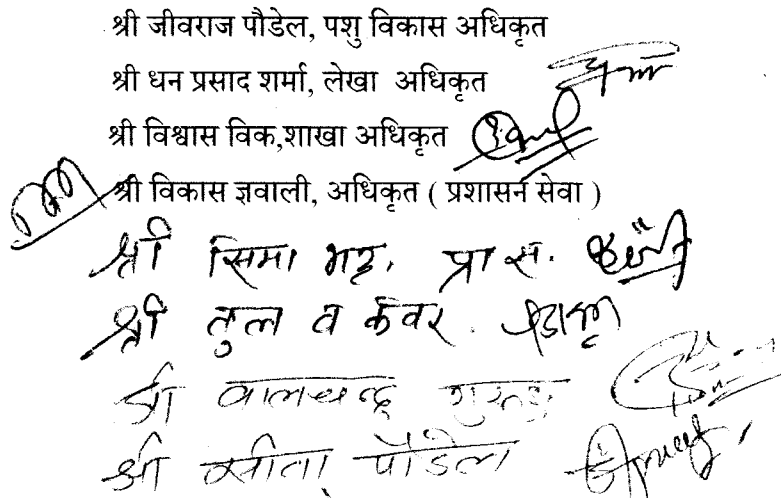 श्री जीवराज पौडेल, पशु विकास अधिकृत
श्री धन प्रसाद शर्मा, लेखा अधिकृत
श्री विश्वास विक,शाखा अधिकृत
श्री विकास ज्ञवाली, अधिकृत ( प्रशासन सेवा )
श्री सिमा भट्ट, प्रा स.
श्री तुल ब कंवर
श्री बालचन्द्र गुरुङ
श्री सीता पौडेल